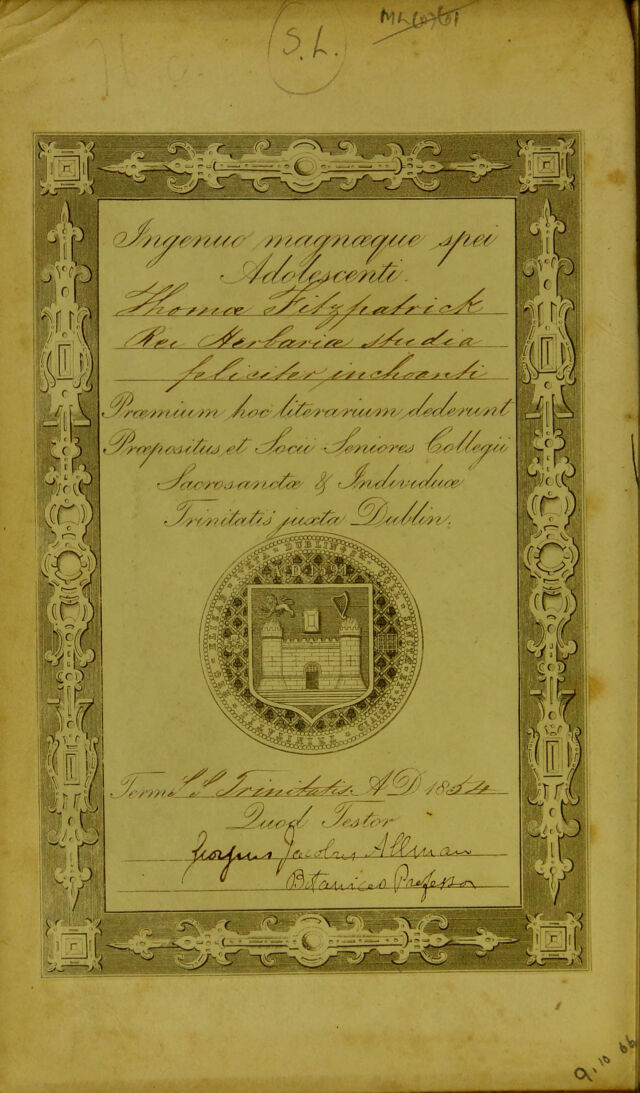 S.L.
Ingenuo magnæque spei
Adolescenti.
Thomæ Fitzpatrick
Rei Herbariæ studia
feliciter inchoanti
Præmium hoc literarium dederunt
Præpositus et Socii Seniores Collegii
Sacrosanctæ & Individuæ
Trinitatis juxta Dublin.
DUBLIN
Term S S Trinitatis A D 1854
Quod Testor
Georgius Jacobus Allman
Botanices Professor
9.10 66